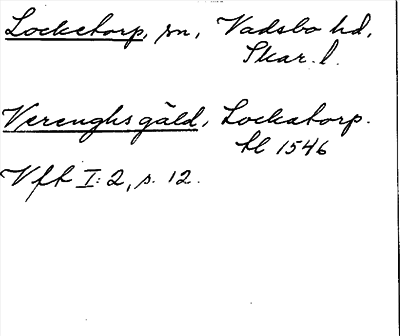 Locketorp, sn, Vadsbo hd,
Skar. l.
Verenghs gäld, Lockatorp.
hl 1546
Vft I:2, s. 12.